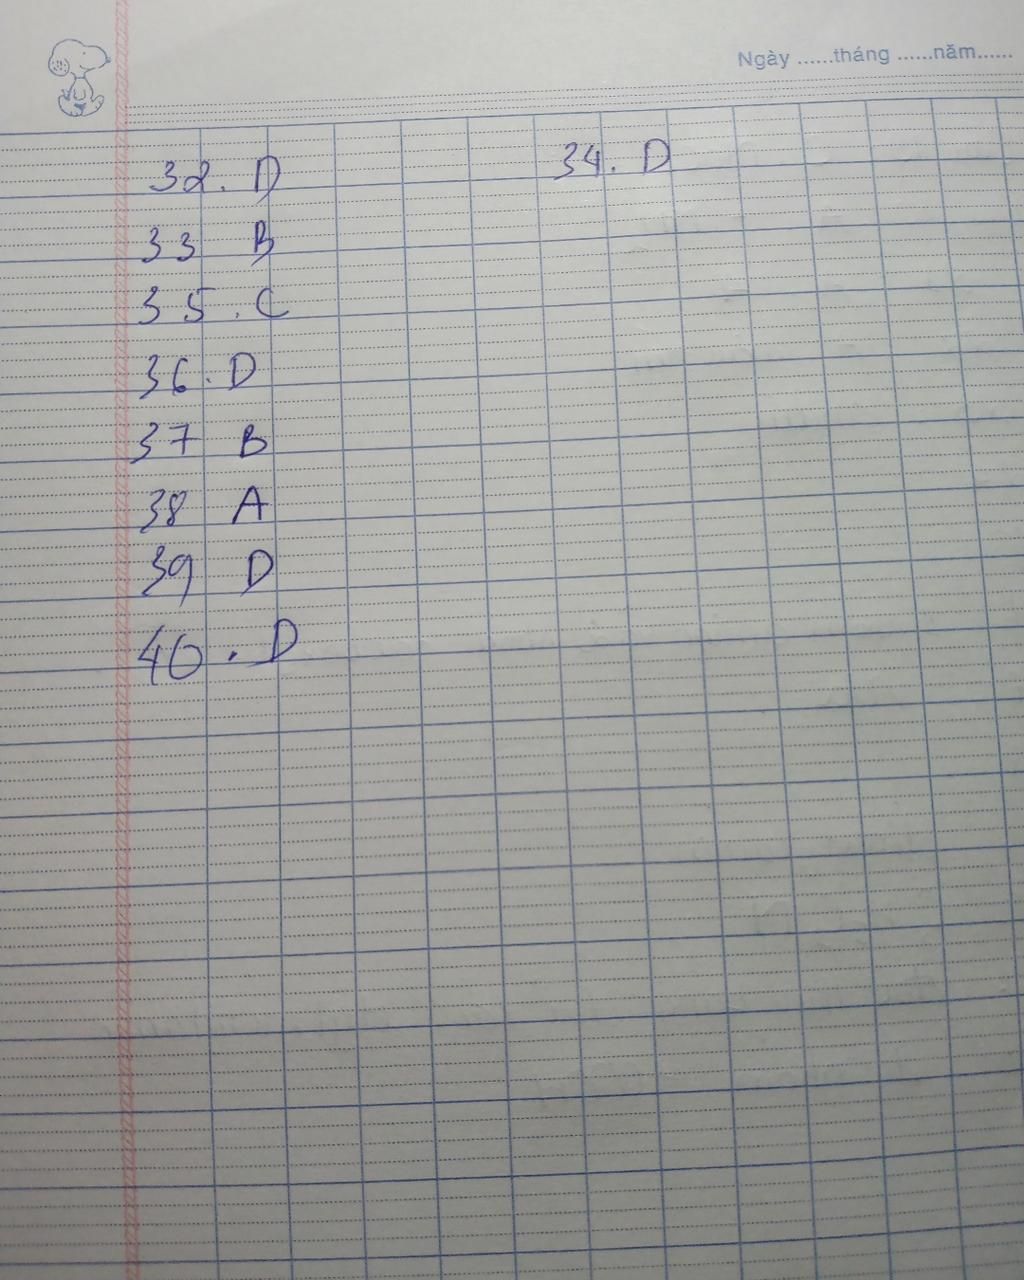 Ngày ......tháng ......năm......
32. D
34. D
33 B
35. C
36. D
37 B
38 A
39 D
40. D